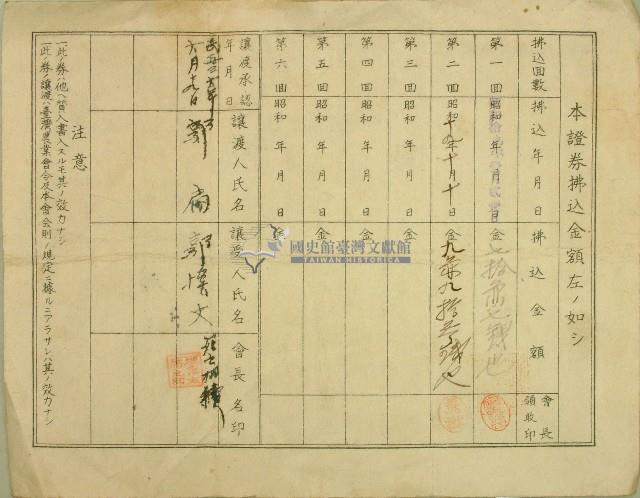 本證券拂込金額左ノ如シ
拂込回數
拂込年月日
拂込金額
會長領收印
第一回
昭和 年 月 日
金七拾
第二回
昭和十九年十月十日
金九
第三回
昭和 年 月 日
金
第四回
昭和 年 月 日
金
第五回
昭和 年 月 日
金
第六回
昭和 年 月 日
金
讓渡承認年月日
讓渡人氏名
讓受人氏名
會長名印
六月十九日
國史館臺灣文獻館
TAIWAN HISTORICA
注意
一此ノ券ハ他ヘ質入書入スルモ其ノ效力ナシ
一此ノ券ノ讓渡ハ臺灣農業會令及本會會則ノ規定ニ據ルニアラサレハ其ノ效力ナシ